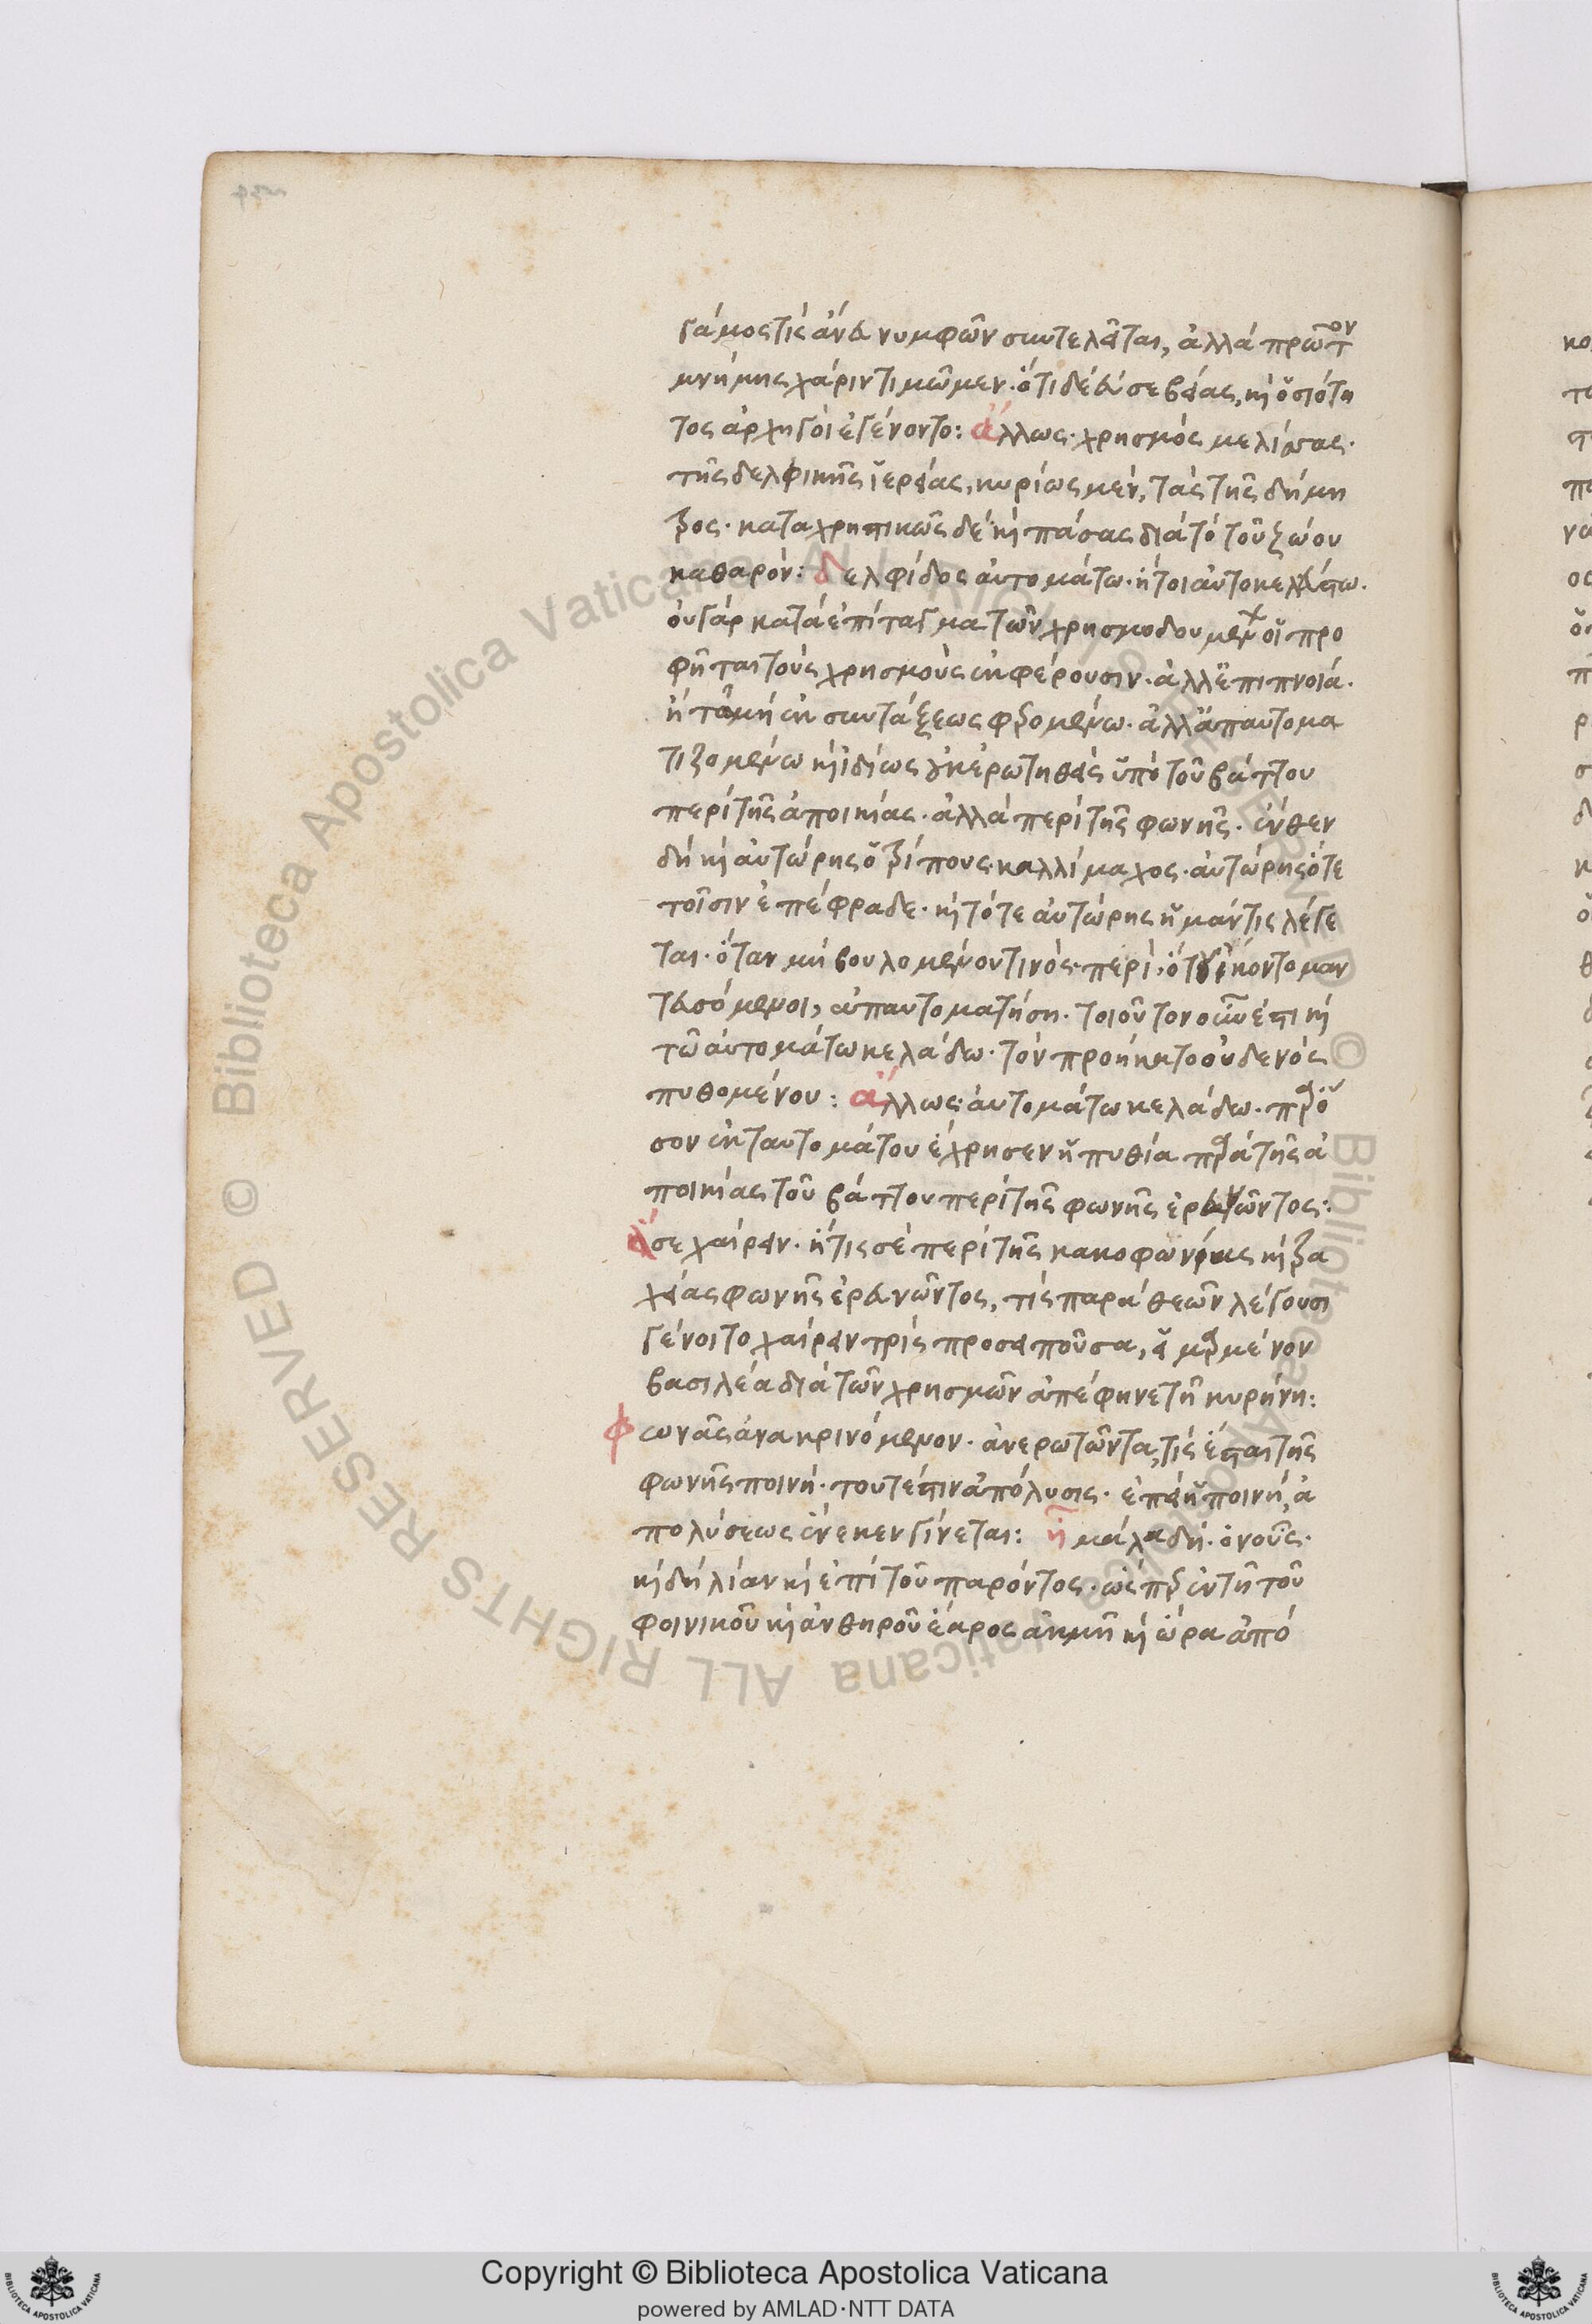 γάμος τίς ἄνευ νυμφῶν συντελεῖται, ἀλλὰ πρῶτον
μνήμης χάριν τιμῶμεν. ὅτι δὲ εὐσεβείας, καὶ ὁσιότη
τος ἀρχηγοὶ ἐγένοντο: ἄλλως. χρησμὸς μελίσσας.
τῆς δελφικῆς ἱερείας, κυρίως μὲν, τὰς τῆς δήμη
τρος. καταχρηστικῶς δὲ καὶ πάσας διὰ τὸ τοῦ ζώου
καθαρόν: δελφίδος αὐτομάτω. ἤτοι αὐτοκελεύστω.
οὐ γὰρ κατὰ ἐπίταγμα τῶν χρησμοδουμένων οἱ προ
φῆται τοὺς χρησμοὺς ἐκφέρουσιν. ἀλλ' ἐπιπνοία.
ἢ τῶ μὴ ἐκ συντάξεως φερομένω. ἀλλ' ἀπαυτομα
τιζομένω καὶ ἰδίως οὐκ ἐρωτηθεὶς ὑπὸ τοῦ βάττου
περὶ τῆς ἀποικίας. ἀλλὰ περὶ τῆς φωνῆς. ἔνθεν
δὴ καὶ αὐτώρης ὁ τρίπους. καλλίμαχος. αὐτώρης ὅτε
τοῖσιν ἐπέφραδε. καὶ τότε αὐτώρης ἡ μάντις λέγε
ται. ὅταν μὴ βουλομένου τινὸς. περὶ ὅτου ἵκοντο μαν
τευσόμενοι, ἀπαυτοματήση. τοιοῦτον οὖν ἐστι καὶ
τῶ αὐτομάτω κελάδω. τὸν προήκατο οὐδενὸς
πυθομένου: ἄλλως. αὐτομάτω κελάδω. παρ' ὅ
σον ἐκ ταυτομάτου ἔχρησεν ἡ πυθία παρὰ τῆς ἀ
ποικίας τοῦ βάττου περὶ τῆς φωνῆς ἐρευνῶντος:
ἅ σε χαίρειν. ἥτις σὲ περὶ τῆς κακοφωνίας καὶ τρα
χείας φωνῆς ἐρευνῶντος, τίς παρὰ θεῶν λέγουσι
γένοιτο χαίρειν τρὶς προσειποῦσα, εἱμαρμένον
βασιλέα διὰ τῶν χρησμῶν ἀπέφηνε τῆ κυρήνη:
φωνᾶς ἀνακρινόμενον. ἀνερωτῶντα, τίς ἔσται τῆς
φωνῆς ποινή. τουτέστιν ἀπόλυσις. ἐπεὶ ἡ ποινή, ἀ
πολύσεως ἕνεκεν γίνεται: ἦ μάλα δὴ. ὁ νοῦς.
καὶ δὴ λίαν καὶ ἐπὶ τοῦ παρόντος. ὥσπερ ἐν τῆ τοῦ
φοινικοῦ καὶ ἀνθηροῦ ἔαρος ἀκμῆ καὶ ὥρα ἀπὸ
Copyright © Biblioteca Apostolica Vaticana
powered by AMLAD·NTT DATA